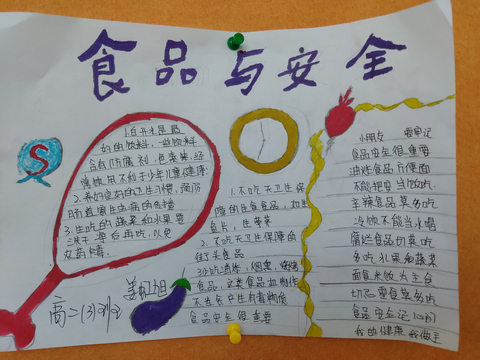 食品与安全
S
1.白开水是最
好的饮料,一些饮料
含有防腐剂,色素等,经
常饮用不利于少年儿童健康
2.养成良好的卫生习惯,预防
肠道寄生虫病的传播
3.生吃的蔬菜和水果要
洗干净后再吃,以免
农药中毒。
姜旭
高二(3)班
1.不吃无卫生保
障的生食食品,如生
鱼片,生荸荠
2.不吃无卫生保障的
街头食品
3.少吃油炸,烟熏,烧烤
食品,这类食品如制作
不当会产生有毒物质
食品安全很重要
小朋友 要牢记
食品安全很重要
油炸食品方便面
不能把它当饭吃
辛辣食品莫多吃
冷饮不能当水喝
腐烂食品莫吃
多吃水果和蔬菜
面食米饭为主食
切忌零食莫多吃
食品安全记心间
我的健康我做主